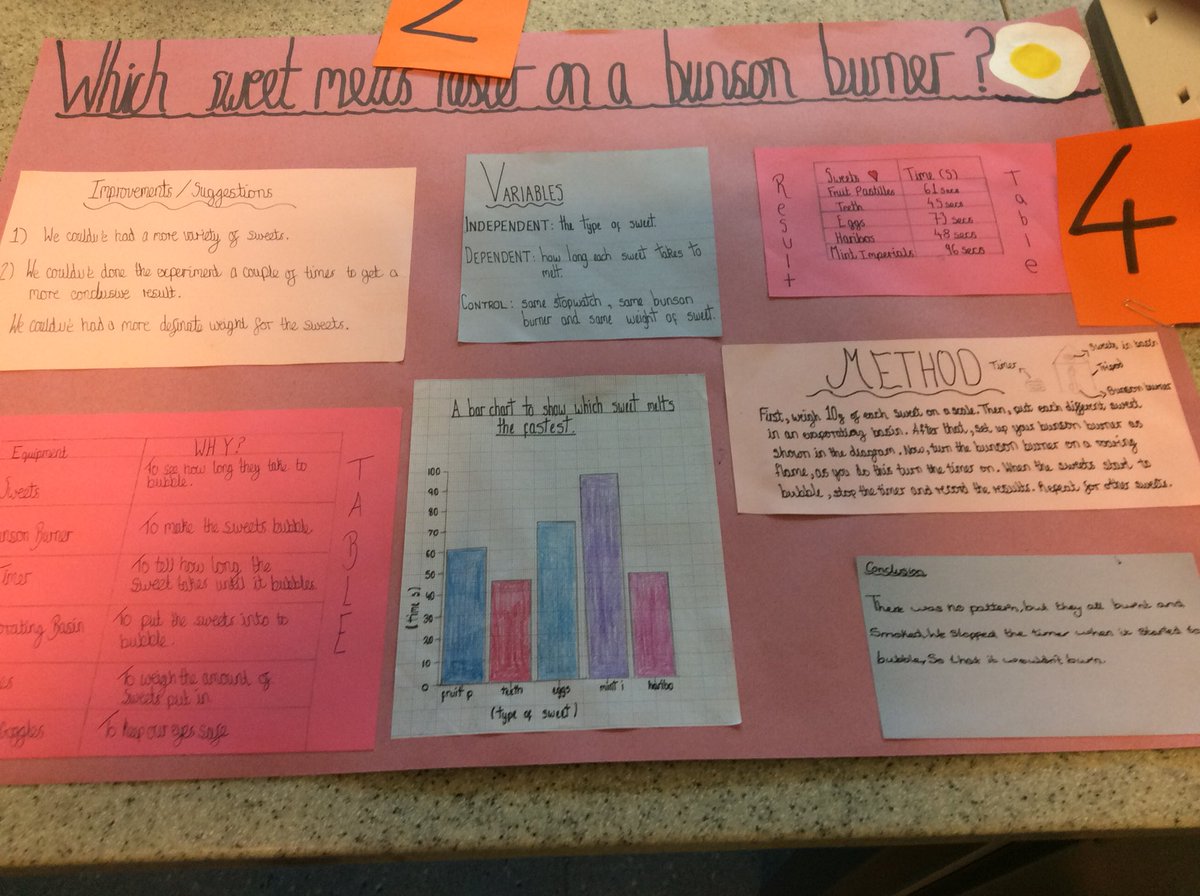 2
Which sweet melts faster on a bunson burner?
4
Improvements/Suggestions
1) We could've had a more variety of sweets.
2) We could've done the experiment a couple of times to get a
more conclusive result.
We could've had a more definate weight for the sweets.
VARIABLES
INDEPENDENT: the type of sweet.
DEPENDENT: how long each sweet takes to
melt.
CONTROL: same stopwatch, same bunson
burner and same weight of sweet.
Result
Table
Sweets Time (S)
Fruit Pastilles 61 secs
Teeth 45 secs
Eggs 73 secs
Haribos 48 secs
Mint Imperials 96 secs
METHOD
Timer
Sweets in basin
Tripod
Bunson burner
First, weigh 10g of each sweet on a scale. Then, put each different sweet
in an evaporating basin. After that, set up your bunson burner as
shown in the diagram. Now, turn the bunson burner on a roaring
flame, as you do this turn the timer on. When the sweets start to
bubble, stop the timer and record the results. Repeat for other sweets.
Equipment WHY?
Sweets To see how long they take to
bubble.
unson Burner To make the sweets bubble
imer To tell how long the
sweet takes until it bubbles.
orating Basin To put the sweets into to
bubble.
es To weigh the amount of
sweets put in
Goggles To keep our eyes safe
TABLE
A bar chart to show which sweet melts
the fastest.
100
90
80
70
60
50
40
30
20
10
0
(time s)
fruit p teeth eggs mint i haribo
(type of sweet)
Conclusion
There was no pattern, but they all burnt and
Smoked. We stopped the timer when it started to
bubble, So that it wouldn't burn.